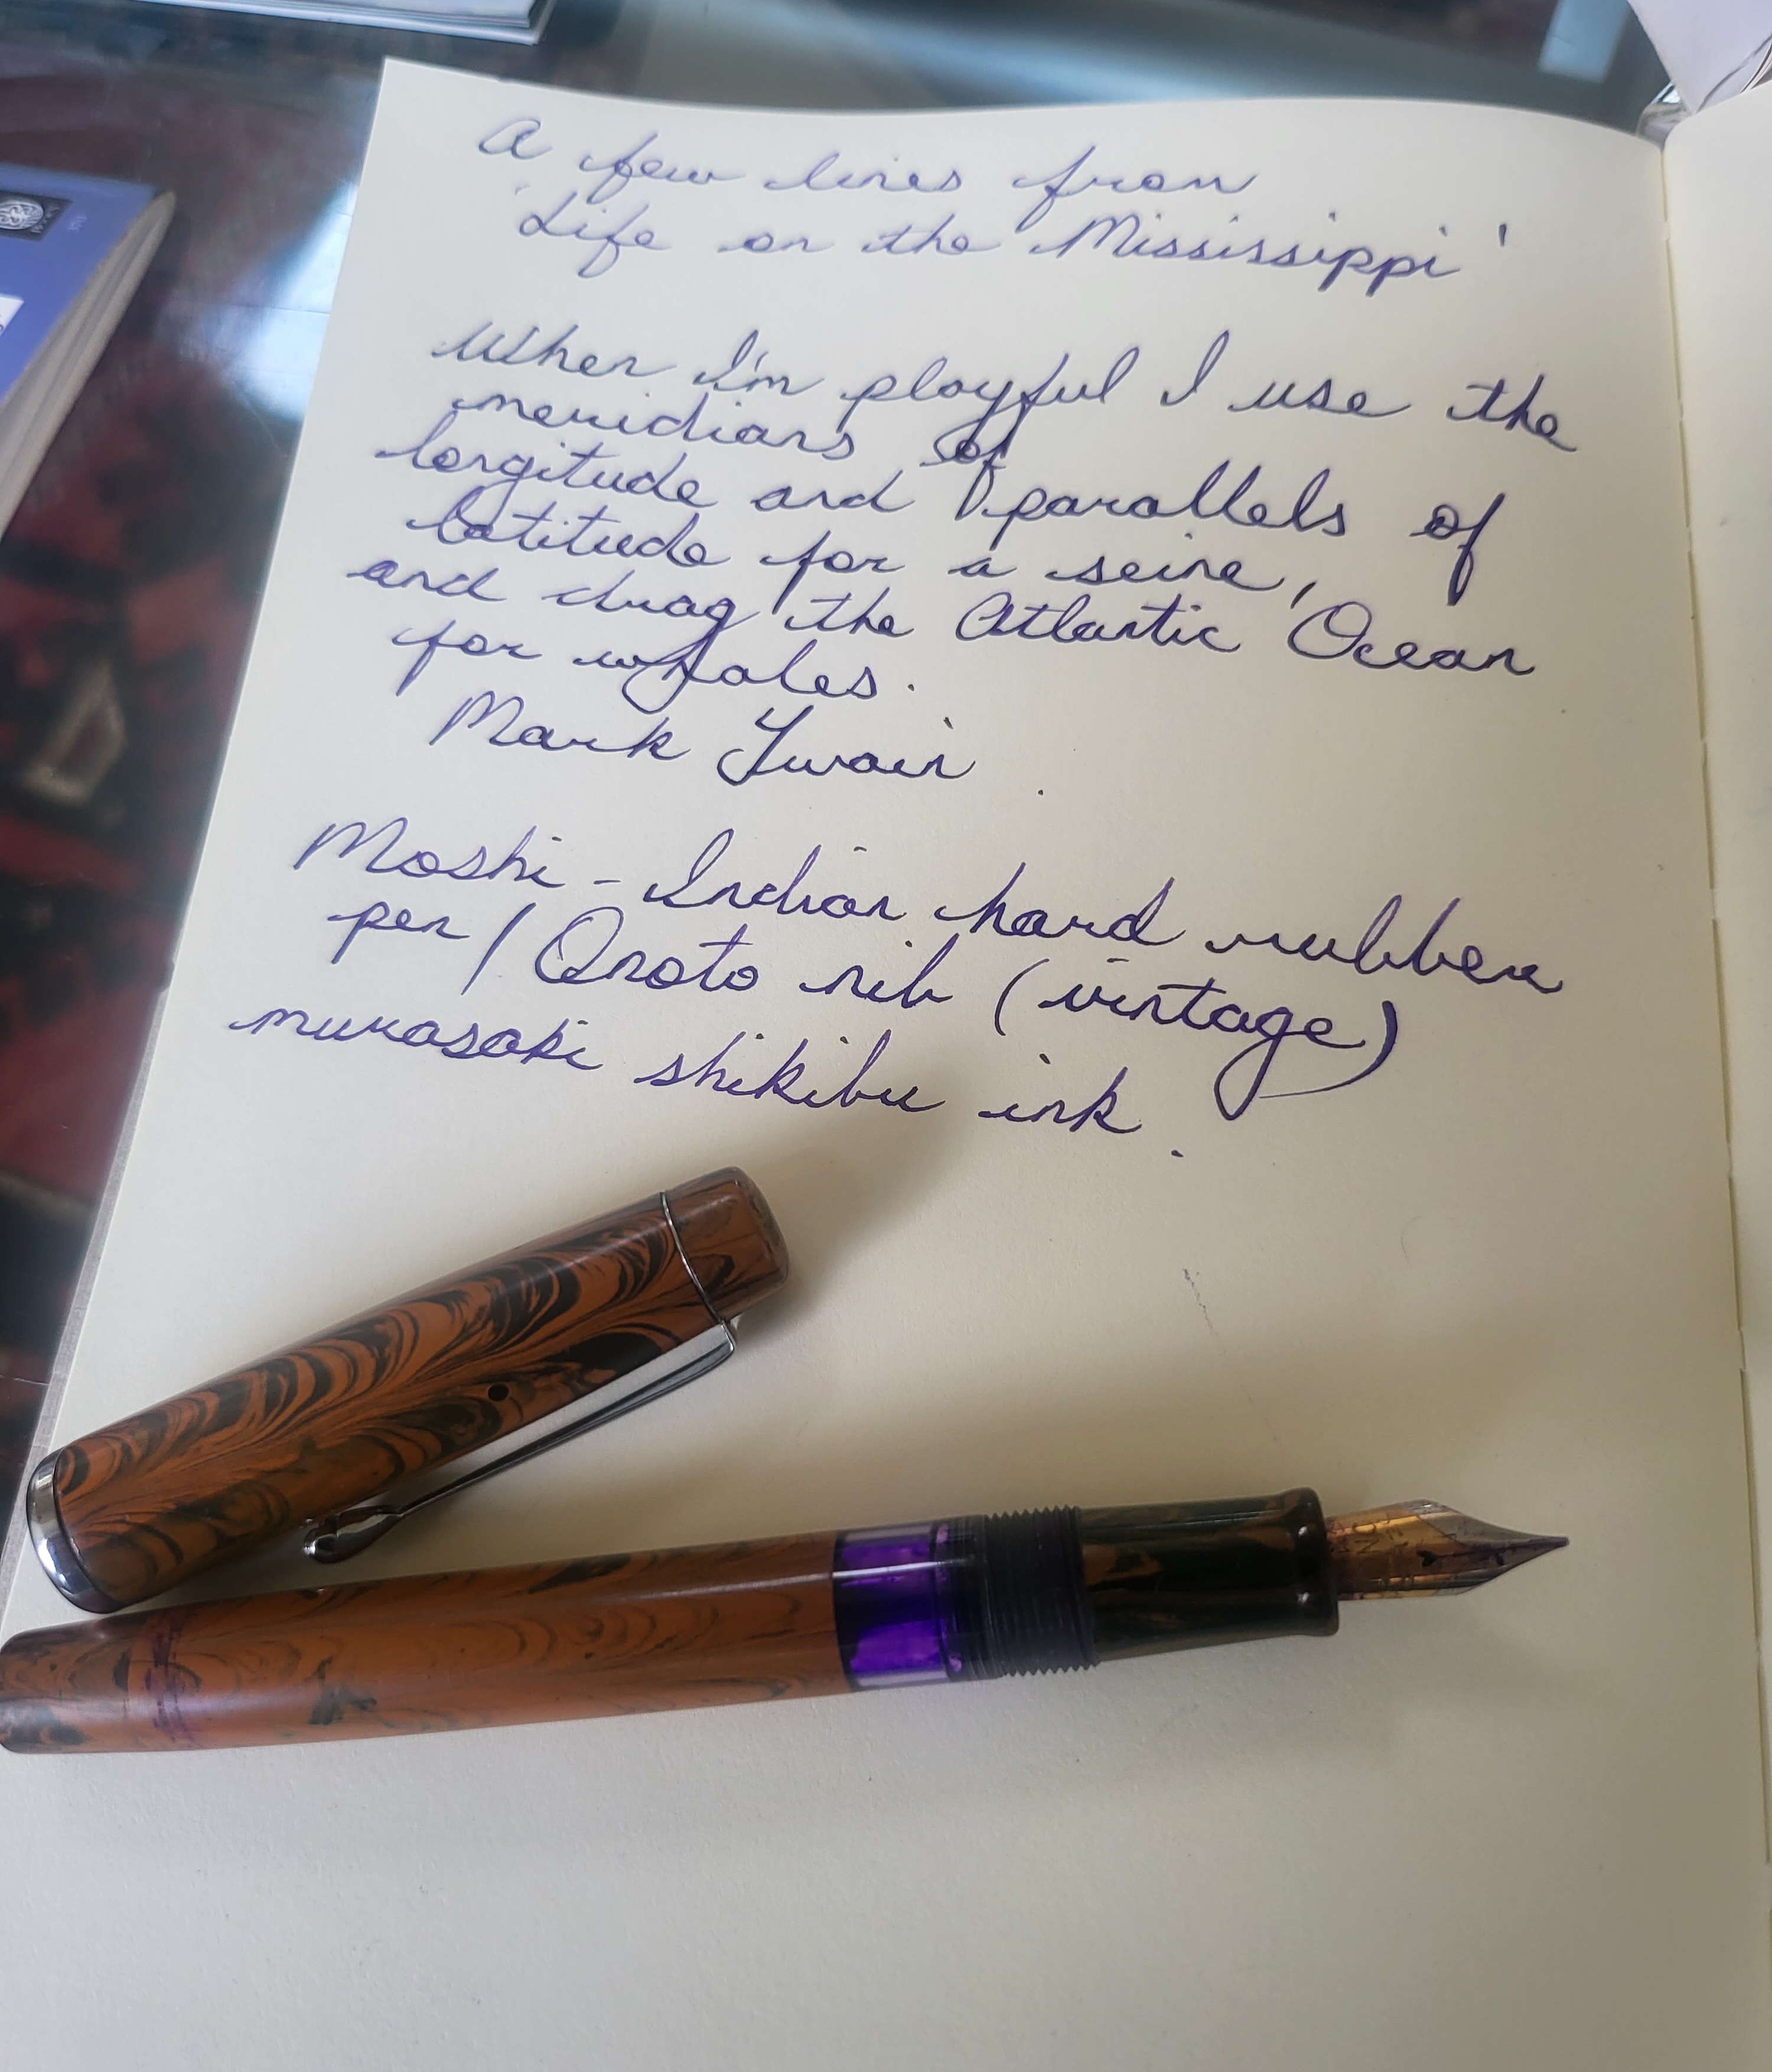 A few lines from
'Life on the Mississippi'
When I'm playful I use the
meridians of
longitude and parallels of
latitude for a seine,
and drag the Atlantic Ocean
for whales.
Mark Twain.
Moshi - Indian hard rubber
pen / Onoto nib (vintage)
murasaki shikibu ink.